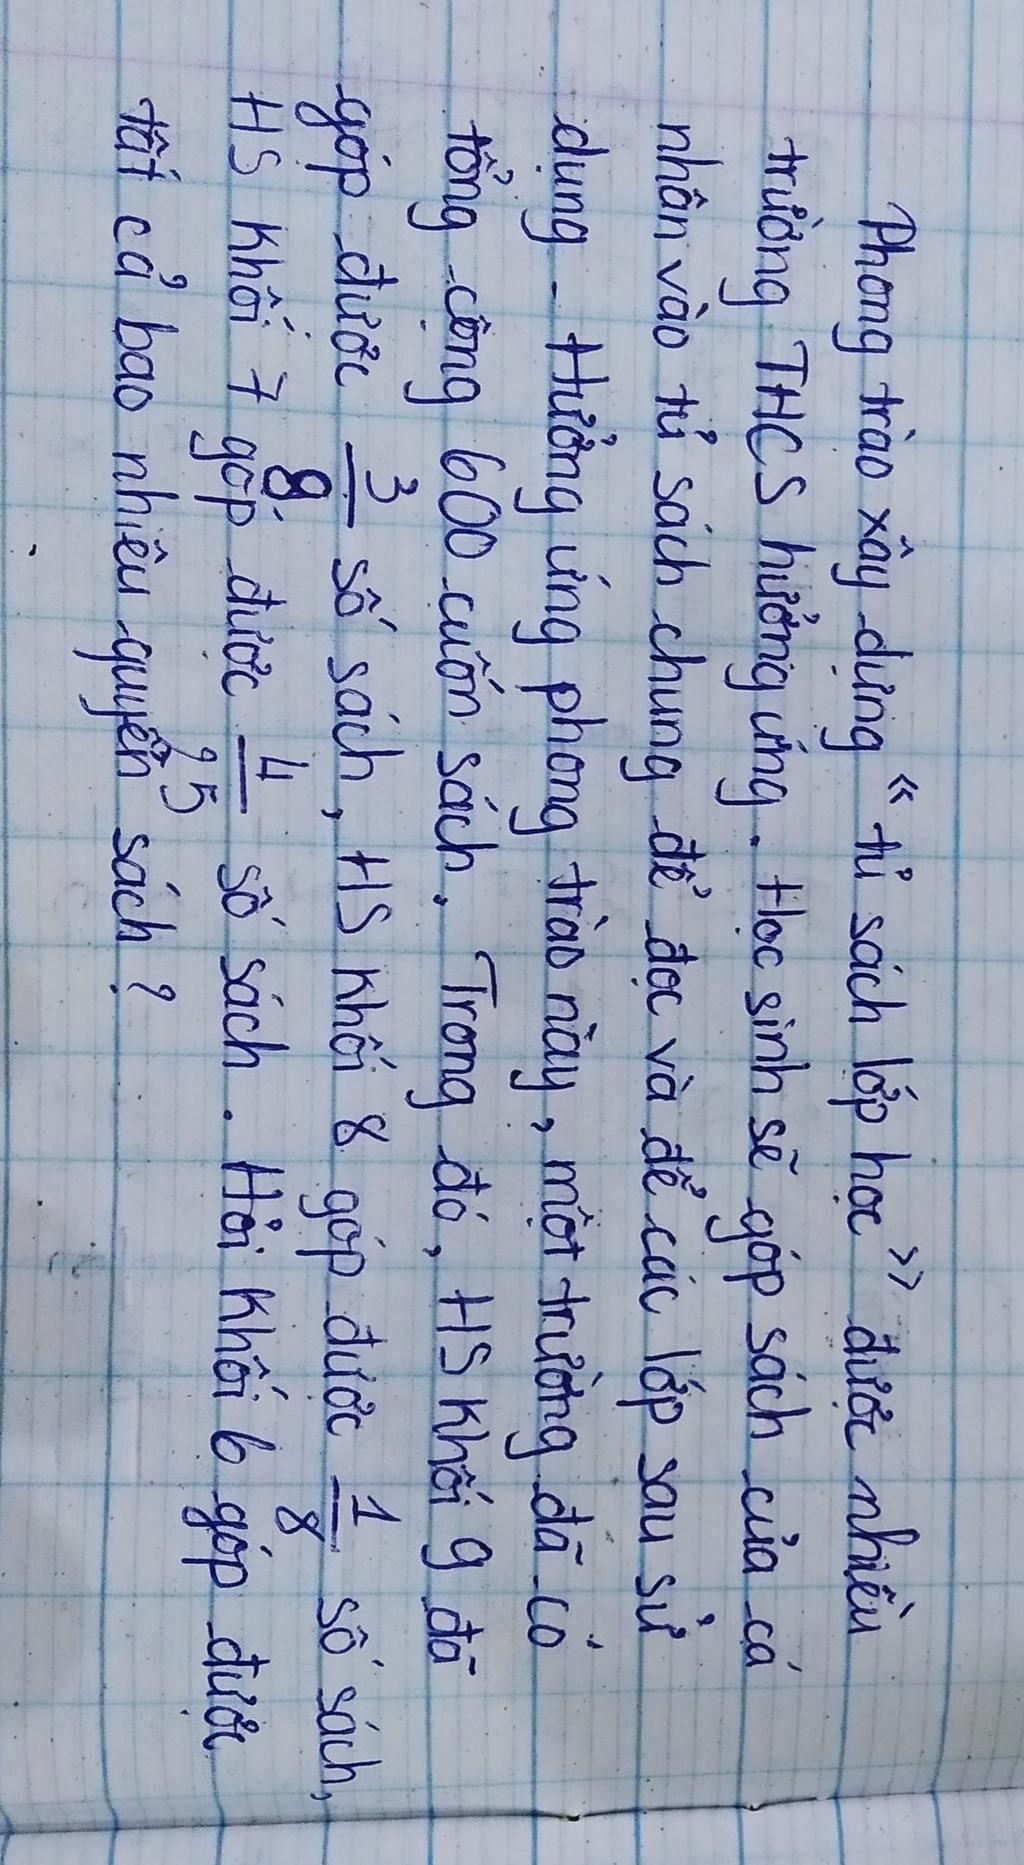 Phong trào xây dựng "tủ sách lớp học" được nhiều
trường THCS hưởng ứng. Học sinh sẽ góp sách của cá
nhân vào tủ sách chung để đọc và để các lớp sau sử
dụng - Hưởng ứng phong trào này, một trường đã có
tổng cộng 600 cuốn sách. Trong đó, HS khối 9 đã
góp được 3/8 số sách, HS khối 8 góp được 1/8 số sách,
HS khối 7 góp được 4/25 số sách. Hỏi khối 6 góp được
tất cả bao nhiêu quyển sách?